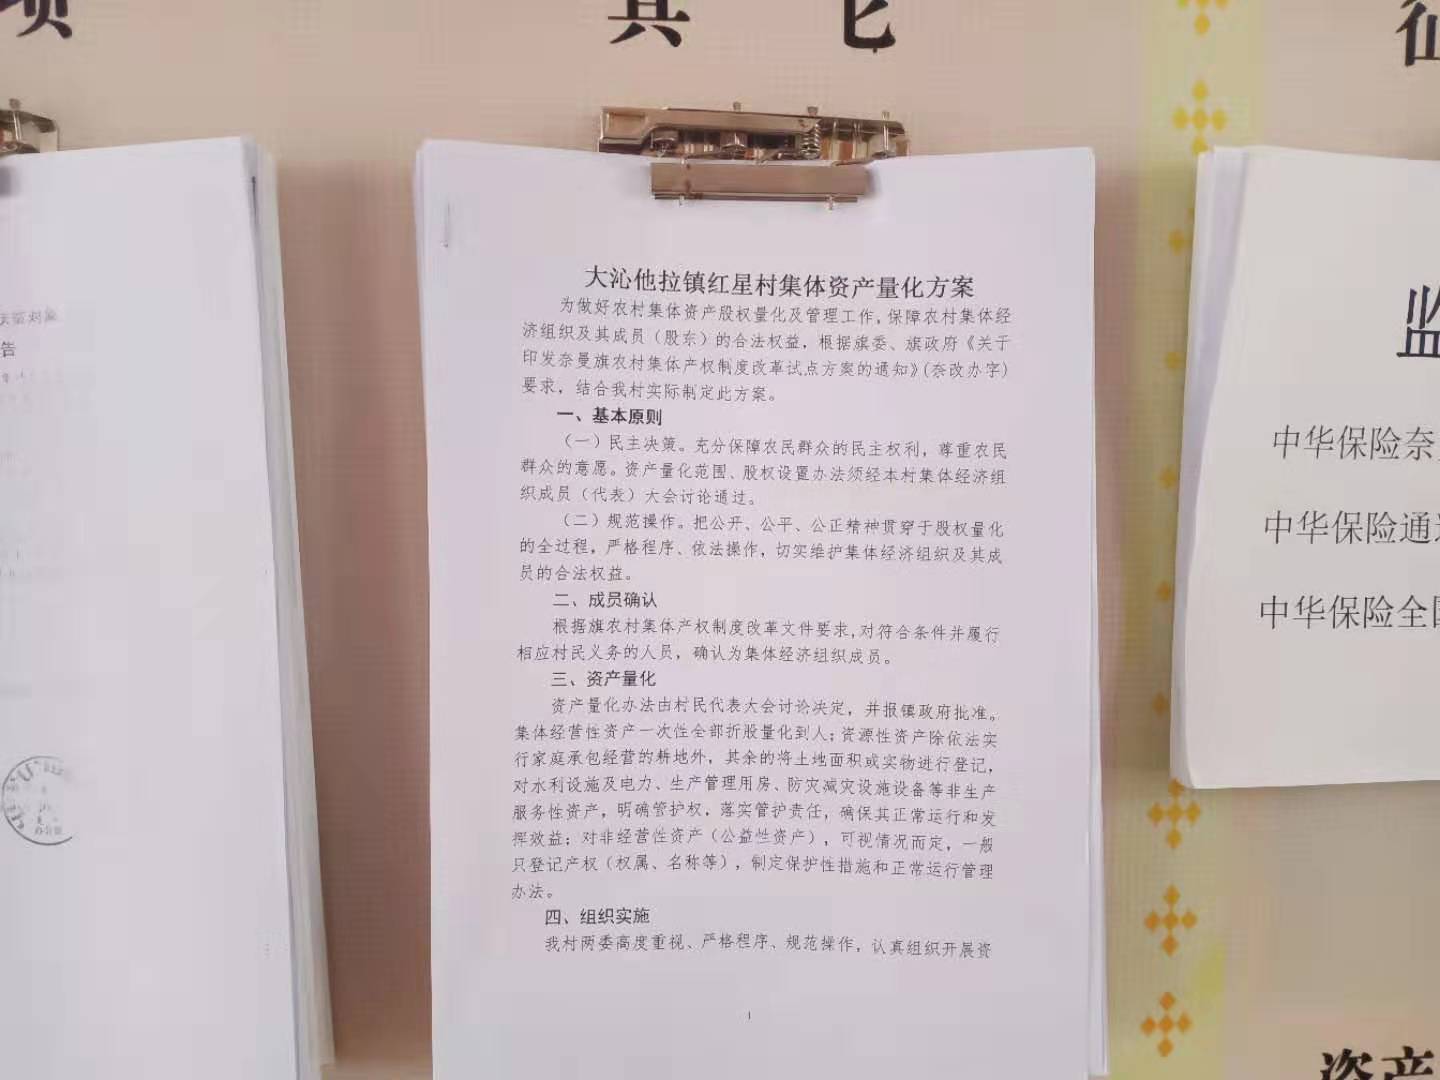 其它
大沁他拉镇红星村集体资产量化方案
为做好农村集体资产股权量化及管理工作,保障农村集体经
济组织及其成员（股东）的合法权益，根据旗委、旗政府《关于
印发奈曼旗农村集体产权制度改革试点方案的通知》(奈改办字)
要求，结合我村实际制定此方案。
一、基本原则
（一）民主决策。充分保障农民群众的民主权利，尊重农民
群众的意愿。资产量化范围、股权设置办法须经本村集体经济组
织成员（代表）大会讨论通过。
（二）规范操作。把公开、公平、公正精神贯穿于股权量化
的全过程，严格程序、依法操作，切实维护集体经济组织及其成
员的合法权益。
二、成员确认
根据旗农村集体产权制度改革文件要求,对符合条件并履行
相应村民义务的人员，确认为集体经济组织成员。
三、资产量化
资产量化办法由村民代表大会讨论决定，并报镇政府批准。
集体经营性资产一次性全部折股量化到人；资源性资产除依法实
行家庭承包经营的耕地外，其余的将土地面积或实物进行登记，
对水利设施及电力、生产管理用房、防灾减灾设施设备等非生产
服务性资产，明确管护权，落实管护责任，确保其正常运行和发
挥效益；对非经营性资产（公益性资产），可视情况而定，一般
只登记产权（权属、名称等），制定保护性措施和正常运行管理
办法。
四、组织实施
我村两委高度重视、严格程序、规范操作，认真组织开展资
1
告
监
中华保险奈
中华保险通
中华保险全国
资产